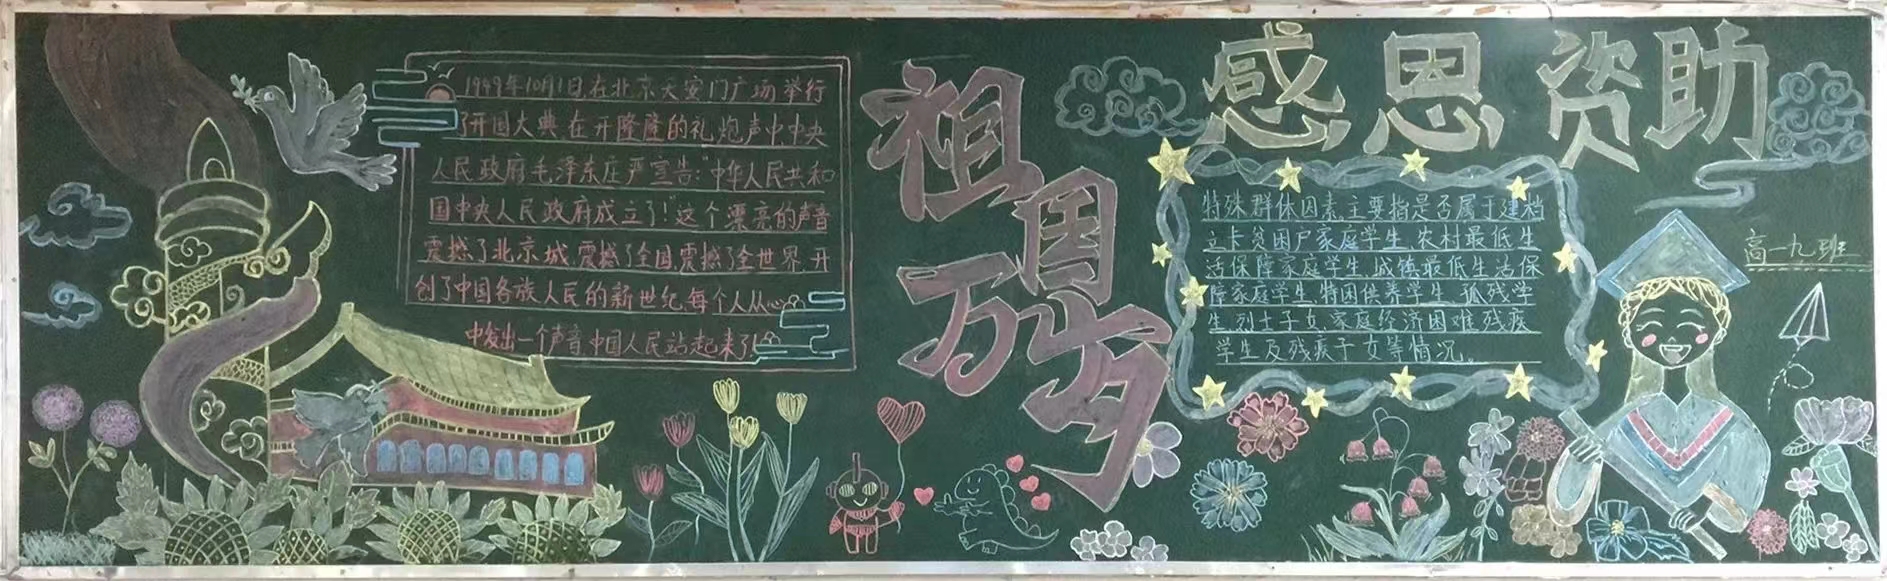 1949年10月1日,在北京天安门广场举行
了开国大典,在开隆隆的礼炮声中,中央
人民政府毛泽东庄严宣告:"中华人民共和
国中央人民政府成立了!"这个漂亮的声音
震撼了北京城,震撼了全国,震撼了全世界,开
创了中国各族人民的新世纪,每个人从心
中发出一个声音:中国人民站起来了!
祖国万岁
感恩资助
特殊群体因素,主要指是否属于建档
立卡贫困户家庭学生、农村最低生
活保障家庭学生、城镇最低生活保
障家庭学生、特困供养学生、孤残学
生、烈士子女、家庭经济困难残疾
学生及残疾子女等情况。
高一九班